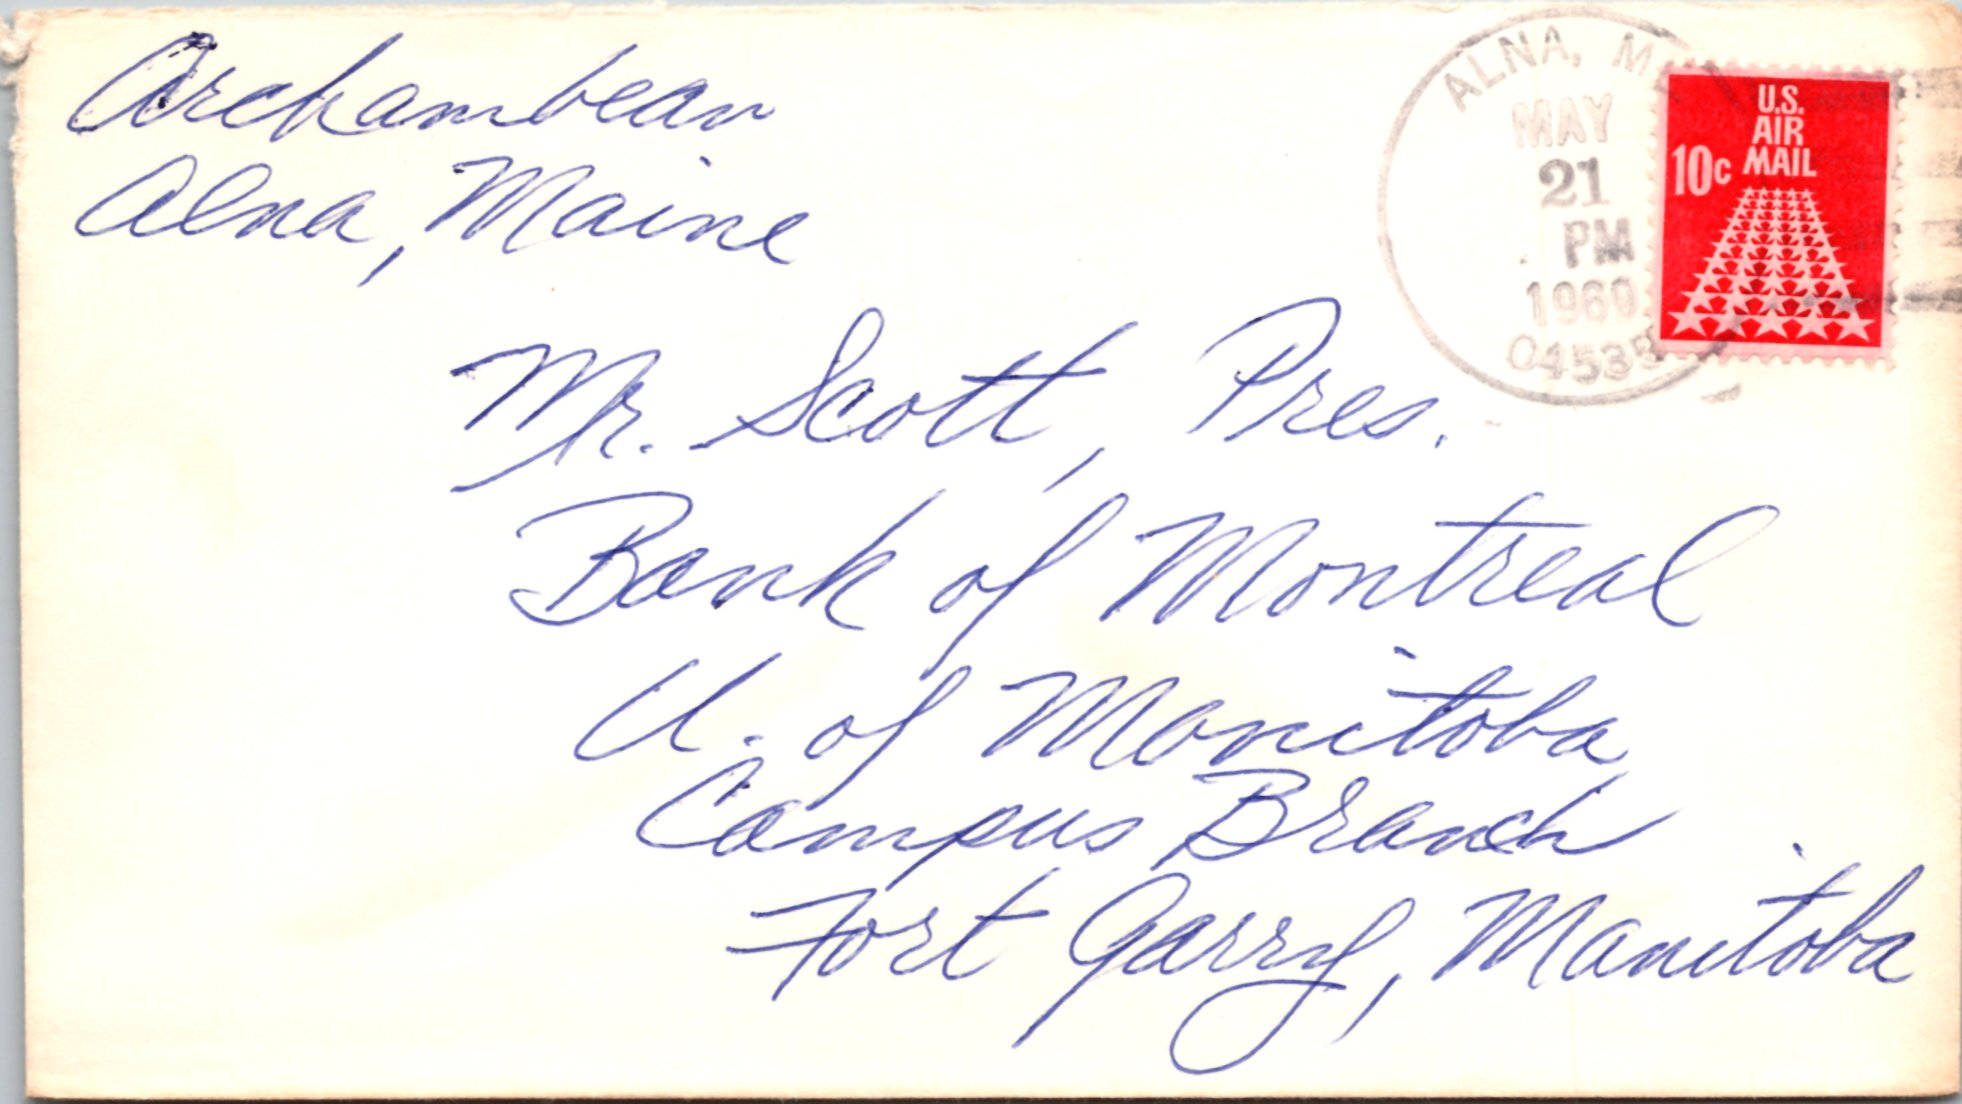 Archambeau
Alna, Maine
ALNA, ME
MAY
21
PM
1969
04535
U.S.
AIR
MAIL
10c
Mr. Scott, Pres.
Bank of Montreal
U. of Manitoba
Campus Branch
Fort Garry, Manitoba